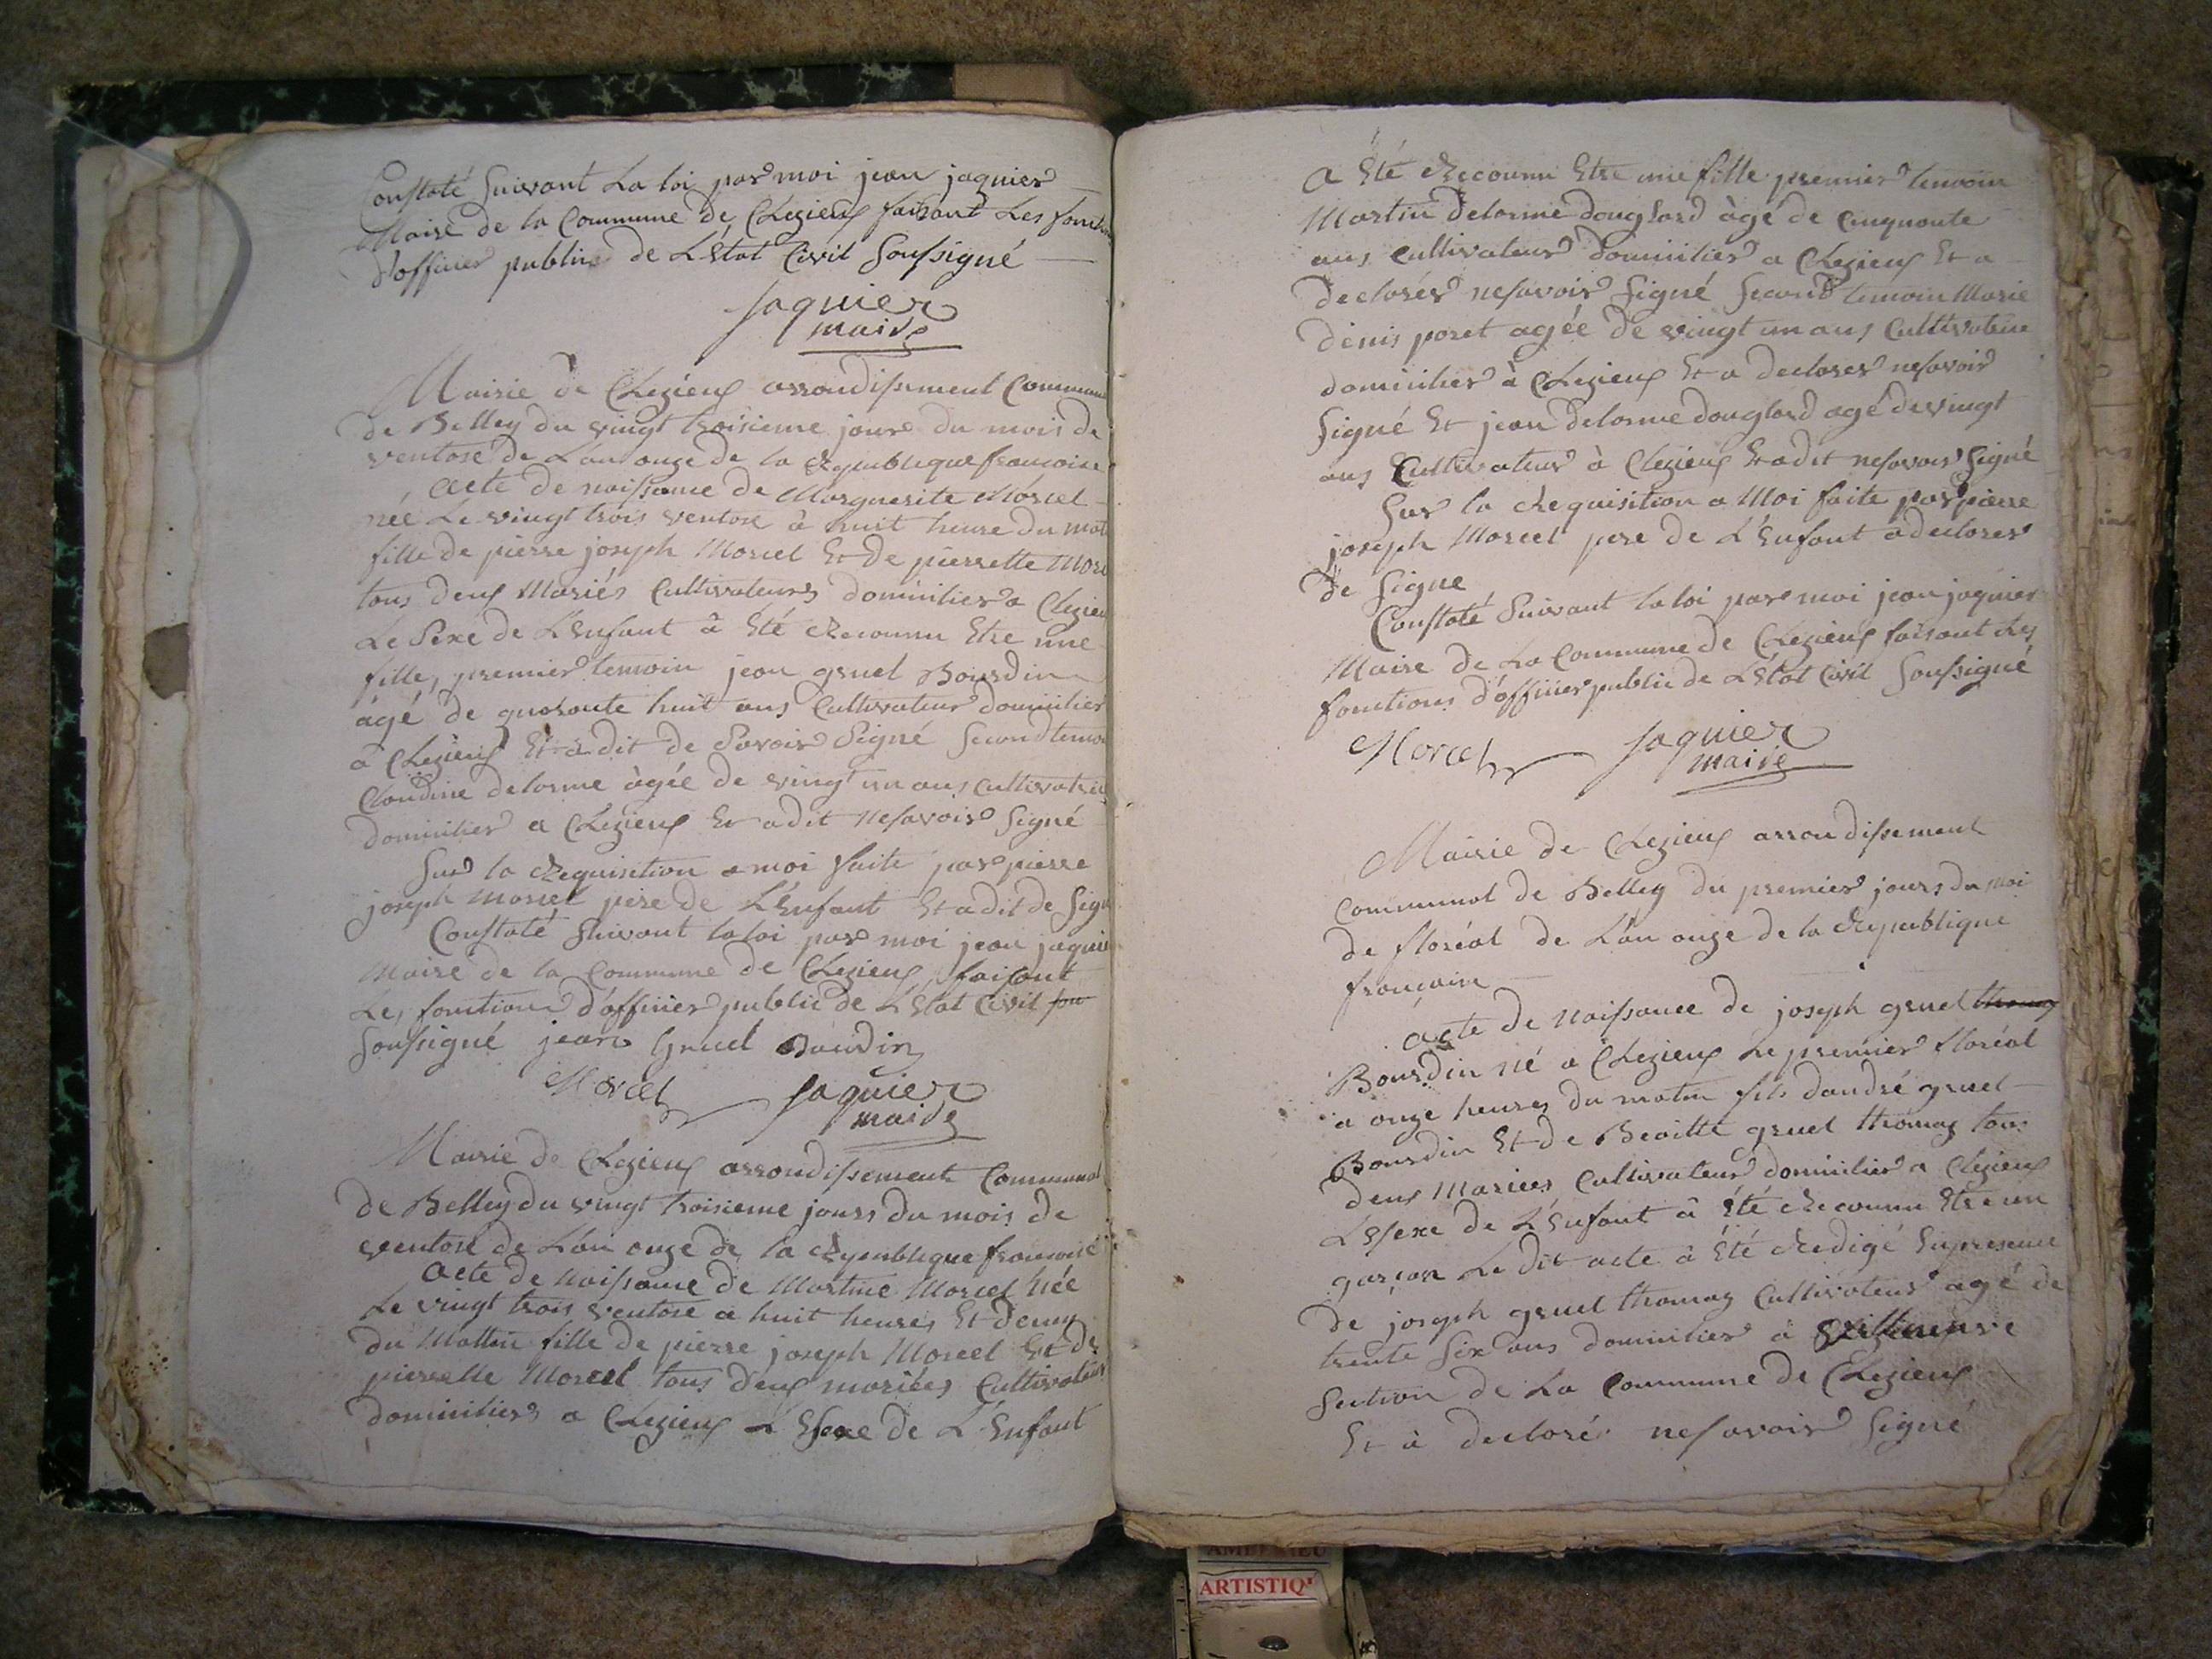 Constaté suivant La loi par moi jean jaquier
Maire de la Commune de Chezieux faisant Les fonction
d'officier public de L'Etat Civil Soussigné
jaquier
maire
Mairie de Chezieux arrondissement Commun
de Belley du vingt troisieme jour du mois de
ventose de L'an onze de la Republique francoise
acte de naissance de Marguerite Morcel
née Le vingt trois ventose à huit heure du mat
fille de pierre joseph Morcel Et de pierrette Morc
tous deux Mariés Cultivateurs domicilier a Chezieu
Le Sexe de L'enfant à Eté Reconnu Etre une
fille, premier temoin jean gruel Bourdin
àgé de quarante huit ans Cultivateur domicilier
à Chezieux Et a dit de Savoir Signé Second temoi
Claudine delorme àgée de vingt un ans Cultivatric
domicilier a Chezieux Et a dit ne savoir Signé
Sur la Requisition a moi faite par pierre
joseph Morcel pere de L'Enfant Et a dit de Sign
Constaté Suivant la loi par moi jean jaquie
Maire de la Commune de Chezieux, faisant
Les fonctions d'officier public de L'Etat Civil sou
soussigné jean Gruel Baudin
Morcel jaquier
maire
Mairie de Chezieux arrondissement Communal
de Belley du vingt troisieme jours du mois de
ventose de L'an onze de la Republique francoise
acte de Naissance de Martine Morcel Née
Le vingt trois ventose a huit heures Et demy
du Mattin fille de pierre joseph Morcel Et de
pierrette Morcel tous deux mariées Cultivateur
domicilier a Chezieux L Esexe de L'Enfant
a Eté Reconnu Etre une fille premier temoin
Martin delorme douglard àgé de Cinquante
ans Cultivateur domicilier a Chezieux Et a
declarer ne savoir Signé Second temoin Marie
denis poret agée de vingt un ans Cultivatrice
domicilier à Chezieux Et a declarer ne savoir
Signé Et jean delorme douglard agé de vingt
ans Cultivateur à Chezieux Et a dit ne savoir Signé
Sur la Requisition a Moi faite par pierre
joseph Morcel pere de L'Enfant a declarer
de Signe
Constaté Suivant la loi par moi jean jaquier
Maire de La Commune de Chezieux faisant Les
fonctions d'officier public de L'Etat Civil Soussigné
Morcel jaquier
maire
Mairie de Chezieux arrondissement
Communal de Belley du premier jours du moi
de floréal de L'an onze de la Republique
francoise
acte de Naissance de joseph gruel thomaz
Bourdin né a Chezieux Le premier floréal
a onze heures du matin fils dandré gruel
Bourdin Et de Benoitte gruel thomaz tous
deux Mariées Cultivateur domicilier a Chezieux
L Esexe de L'Enfant à Eté Reconnu Etre un
garçon Le dit acte à Eté Redigé En presence
de joseph gruel thomaz Cultivateur agé de
trente Six ans domicilier à Villeneuve
Section de La Commune de Chezieux
Et à declaré ne savoir Signé
ARTISTIQ'